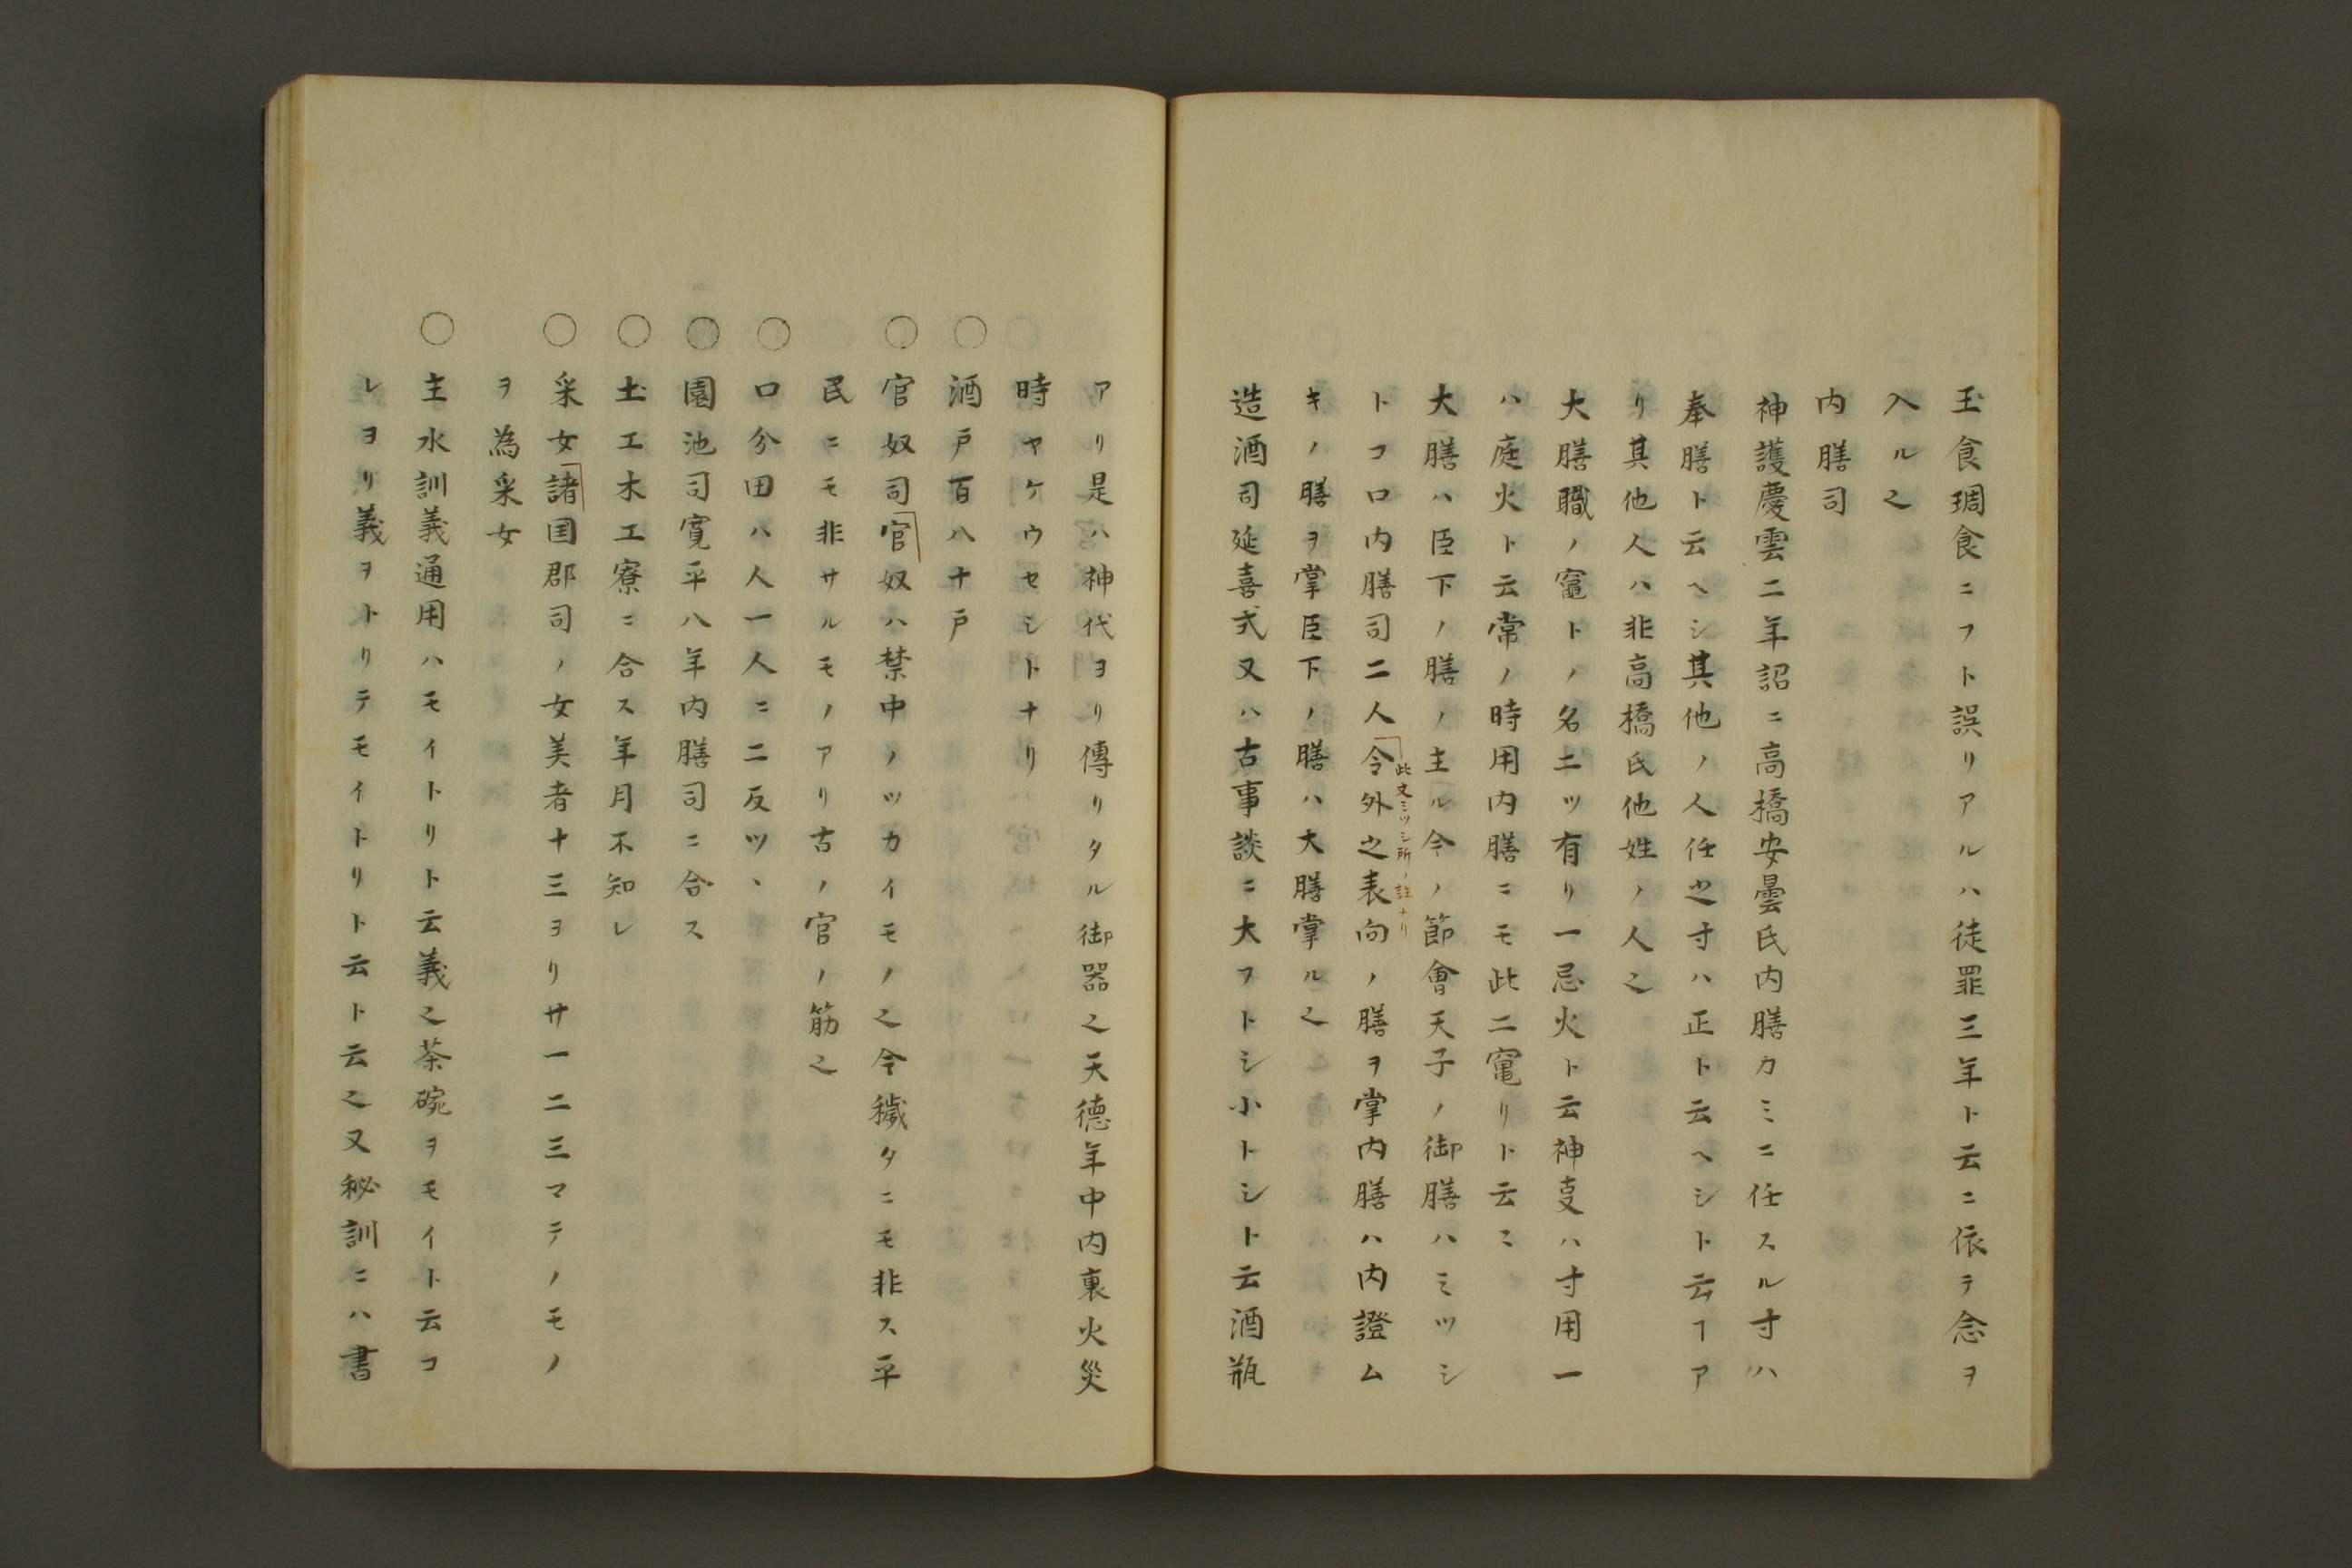 玉食琱食ニフト誤リアルハ徒罪三年ト云ニ依テ念ヲ
入ル之
内膳司
神護慶雲二年詔ニ高橋安曇氏内膳カミニ任スル寸ハ
奉膳ト云ヘシ其他ノ人任之寸ハ正ト云ヘシト云ヿア
リ其他人ハ非高橋氏他姓ノ人之
大膳職ノ竈トノ名二ツ有リ一忌火ト云神叓ハ寸用一
ハ庭火ト云常ノ時用内膳ニモ此二竃リト云ニ
大膳ハ臣下ノ膳ノ主ル今ノ節會天子ノ御膳ハミツシ
トコロ内膳司二人令外之表向ノ膳ヲ掌内膳ハ内證ム
此文ミツシ所ノ註ナリ
キノ膳ヲ掌臣下ノ膳ハ大膳掌ル之
造酒司延喜式又ハ古事談ニ大フトシ小トシト云酒瓶
アリ是ハ神代ヨリ傳リタル御器之天徳年中内裏火災
時ヤケウセシトナリ
○酒戸百八十戸
○官奴司官奴ハ禁中ノツカイモノ之今穢タニモ非ス平
民ニモ非サルモノアリ古ノ官ノ筋之
○口分田ハ人一人ニ二反ツヽ
○園池司寛平八年内膳司ニ合ス
○土工木工寮ニ合ス年月不知レ
○采女諸国郡司ノ女美者十三ヨリ廿一二三マテノモノ
ヲ為采女
○主水訓義通用ハモイトリト云義之茶碗ヲモイト云コ
レヨリ義ヲトリテモイトリト云ト云之又秘訓ニハ書